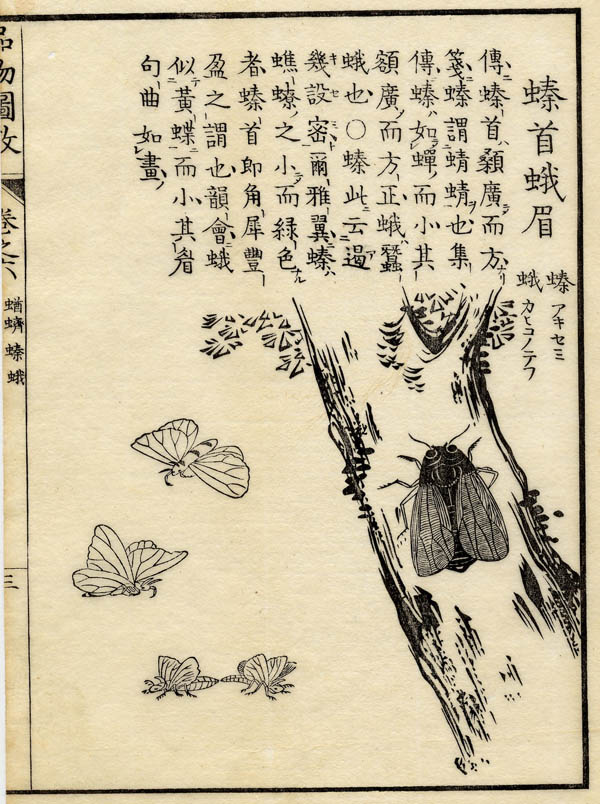 螓首蛾眉
螓 アキセミ
蛾 カヒコノテフ
傳螓首顙廣而方
箋螓謂蜻蜻也集
傳螓如蟬而小其
額廣而方正蛾蠶
蛾也○螓此云過
幾設密爾雅翼螓
蟭蟟之小而緑色
者螓首即角犀豐
盈之謂也韻會蛾
似黃蝶而小其眉
句曲如畫
品物圖攷
卷之六
蝤蠐 螓 蛾
三